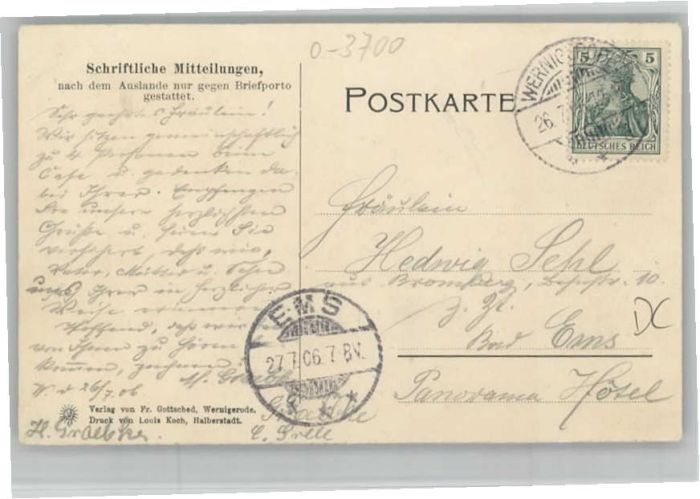 0-3700
Schriftliche Mitteilungen,
nach dem Auslande nur gegen Briefporto
gestattet.
POSTKARTE
WERNIGERODE
26.7.
5 5
DEUTSCHES REICH
Sehr geehrtes Fräulein!
Wir sitzen gemeinschaftlich
zu 4 Personen beim
Cafe u. gedenken da-
bei Ihrer. Empfangen
Sie unsere herzlichsten
Grüße u. seien Sie
versichert, daß wir,
Vater, Mutter u. Sohn
uns Ihrer in herzlicher
Weise erinnern.
Hoffend, daß wir
von Ihnen zu hören
bekommen, zeichnen
W d 26/7.06
H. Graebke.
Fräulein
Hedwig Sehl
aus Bromberg, 10.
z. Zt.
Bad Ems
Panorama Hôtel
DC
EMS
27.7.06.7-8V.
Verlag von Fr. Gottsched, Wernigerode.
Druck von Louis Koch, Halberstadt.